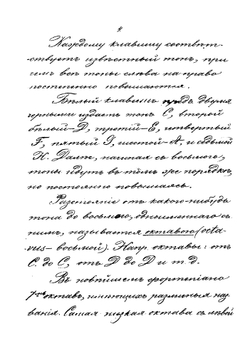 2
Каждому клавишу соотвѣт-
ствуетъ извѣстный тонъ, при
чемъ всѣ тоны слѣва на право
постепенно повышаются.
Бѣлый клавишъ предъ двумя
черными издаетъ тонъ C, второй
бѣлый-D, третій-E, четвертый
F, пятый G, шестой-A, и седьмой
H. Далѣе, начиная съ восьмого,
тоны идутъ въ томъ же порядкѣ,
но постепенно повышаясь.
Разстояніе отъ какого-нибудь
тона до восьмого, одноименнаго съ
нимъ, называется октавою (octa-
vus-восьмой). Напр. октавы: отъ
C. до C, отъ D до D и т. д.
Въ новѣйшемъ фортепіано
октавъ, имѣющихъ различныя наз-
ванія. Самая низкая октава съ лѣвой